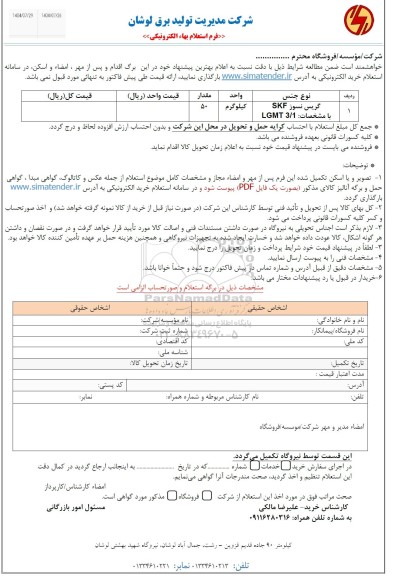 شرکت مدیریت تولید برق لوشان
<<فرم استعلام بهاء الکترونیکی>>
شرکت/مؤسسه/فروشگاه محترم ................
خواهشمند است ضمن مطالعه شرایط ذیل با دقت نسبت به اعلام بهترین پیشنهاد خود در این برگ اقدام و پس از مهر ، امضاء و اسکن، در سامانه
استعلام خرید الکترونیکی به آدرس www.simatender.ir بارگذاری نمایید، ارائه قیمت طی پیش فاکتور به تنهائی مورد قبول نمی باشد.
ردیف نوع جنس واحد مقدار قیمت واحد (ریال) قیمت کل(ریال)
۱ گریس نسوز SKF کیلوگرم ۵۰
با مشخصات: LGMT 3/1
* جمع کل مبلغ استعلام با احتساب کرایه حمل و تحویل در محل این شرکت و بدون احتساب ارزش افزوده لحاظ و درج گردد.
* کلیه کسورات قانونی بعهده فروشنده می باشد.
* فروشنده می بایست در پیشنهاد قیمت خود نسبت به اعلام زمان تحویل کالا اقدام نماید.
* توضیحات:
۱- تصویر و یا اسکن تکمیل شده این فرم پس از مهر و امضاء مجاز و مشخصات کامل موضوع استعلام از جمله عکس و کاتالوگ، گواهی مبدا ، گواهی
حمل و برگه آنالیز کالای مذکور (بصورت یک فایل PDF) پیوست شود و در سامانه استعلام خرید الکترونیکی به آدرس www.simatender.ir
بارگذاری گردد.
۲- کل بهای کالا پس از تحویل و تأئید فنی توسط کارشناس این شرکت (در صورت نیاز قبل از خرید از کالا نمونه گرفته خواهد شد) و اخذ صورتحساب
و کسر کلیه کسورات قانونی پرداخت می شود.
۳- لازم بذکر است اجناس تحویلی به نیروگاه در صورت داشتن مستندات فنی و اصالت کالا مورد تأیید قرار خواهد گرفت و در صورت نقصان و داشتن
هر گونه اشکال، کالا عودت داده خواهد شد و خسارت ایجاد شده به تجهیزات نیروگاهی و همچنین هزینه حمل بر عهده تأمین کننده کالا خواهد بود.
۴- لطفا در پیشنهاد قیمت خود شرایط پرداخت و زمان تحویل را درج نمایید.
۴- مشخصات فنی را به پیوست ارسال نمایید.
۵- مشخصات دقیق از قبیل آدرس و شماره تماس در پیش فاکتور درج شود و حتما خوانا باشد
۶-خریدار در قبول یا رد پیشنهادات مختار می باشد.
مشخصات ذیل در برگه استعلام و صورتحساب الزامی است
اشخاص حقیقی اشخاص حقوقی
نام و نام خانوادگی: نام مؤسسه/شرکت:
نام فروشگاه/پیمانکار: شماره ثبت شرکت:
کد ملی: کد اقتصادی:
شناسه ملی:
تاریخ تکمیل: تاریخ زمان تحویل کالا:
مدت اعتبار قیمت :
آدرس: کد پستی:
تلفن: نام کارشناس مربوطه و شماره همراه: نمابر:
امضاء مدیر و مهر شرکت/موسسه/فروشگاه
این قسمت توسط نیروگاه تکمیل می‌گردد.
در اجرای سفارش خرید خدمات شماره ............که در تاریخ ............... به اینجانب ارجاع گردید در کمال دقت
این استعلام تنظیم و اخذ گردید، صحت مندرجات آنرا گواهی می‌نمایم.
امضاء کارشناس/کارپرداز
صحت مراتب فوق در مورد اخذ این استعلام از شرکت فروشگاه مذکور مورد گواهی است.
کارشناس خرید- علیرضا مالکی مسئول امور بازرگانی
به شماره همراه: ۰۹۱۱۶۲۸۰۳۱۶
کیلومتر ۹۰ جاده قدیم قزوین – رشت، جمال آباد لوشان، نیروگاه شهید بهشتی لوشان
تلفن: ۰۱۳۳۴۶۱۰۲۱۲ نمابر: ۰۱۳۳۴۶۱۰۲۲۱